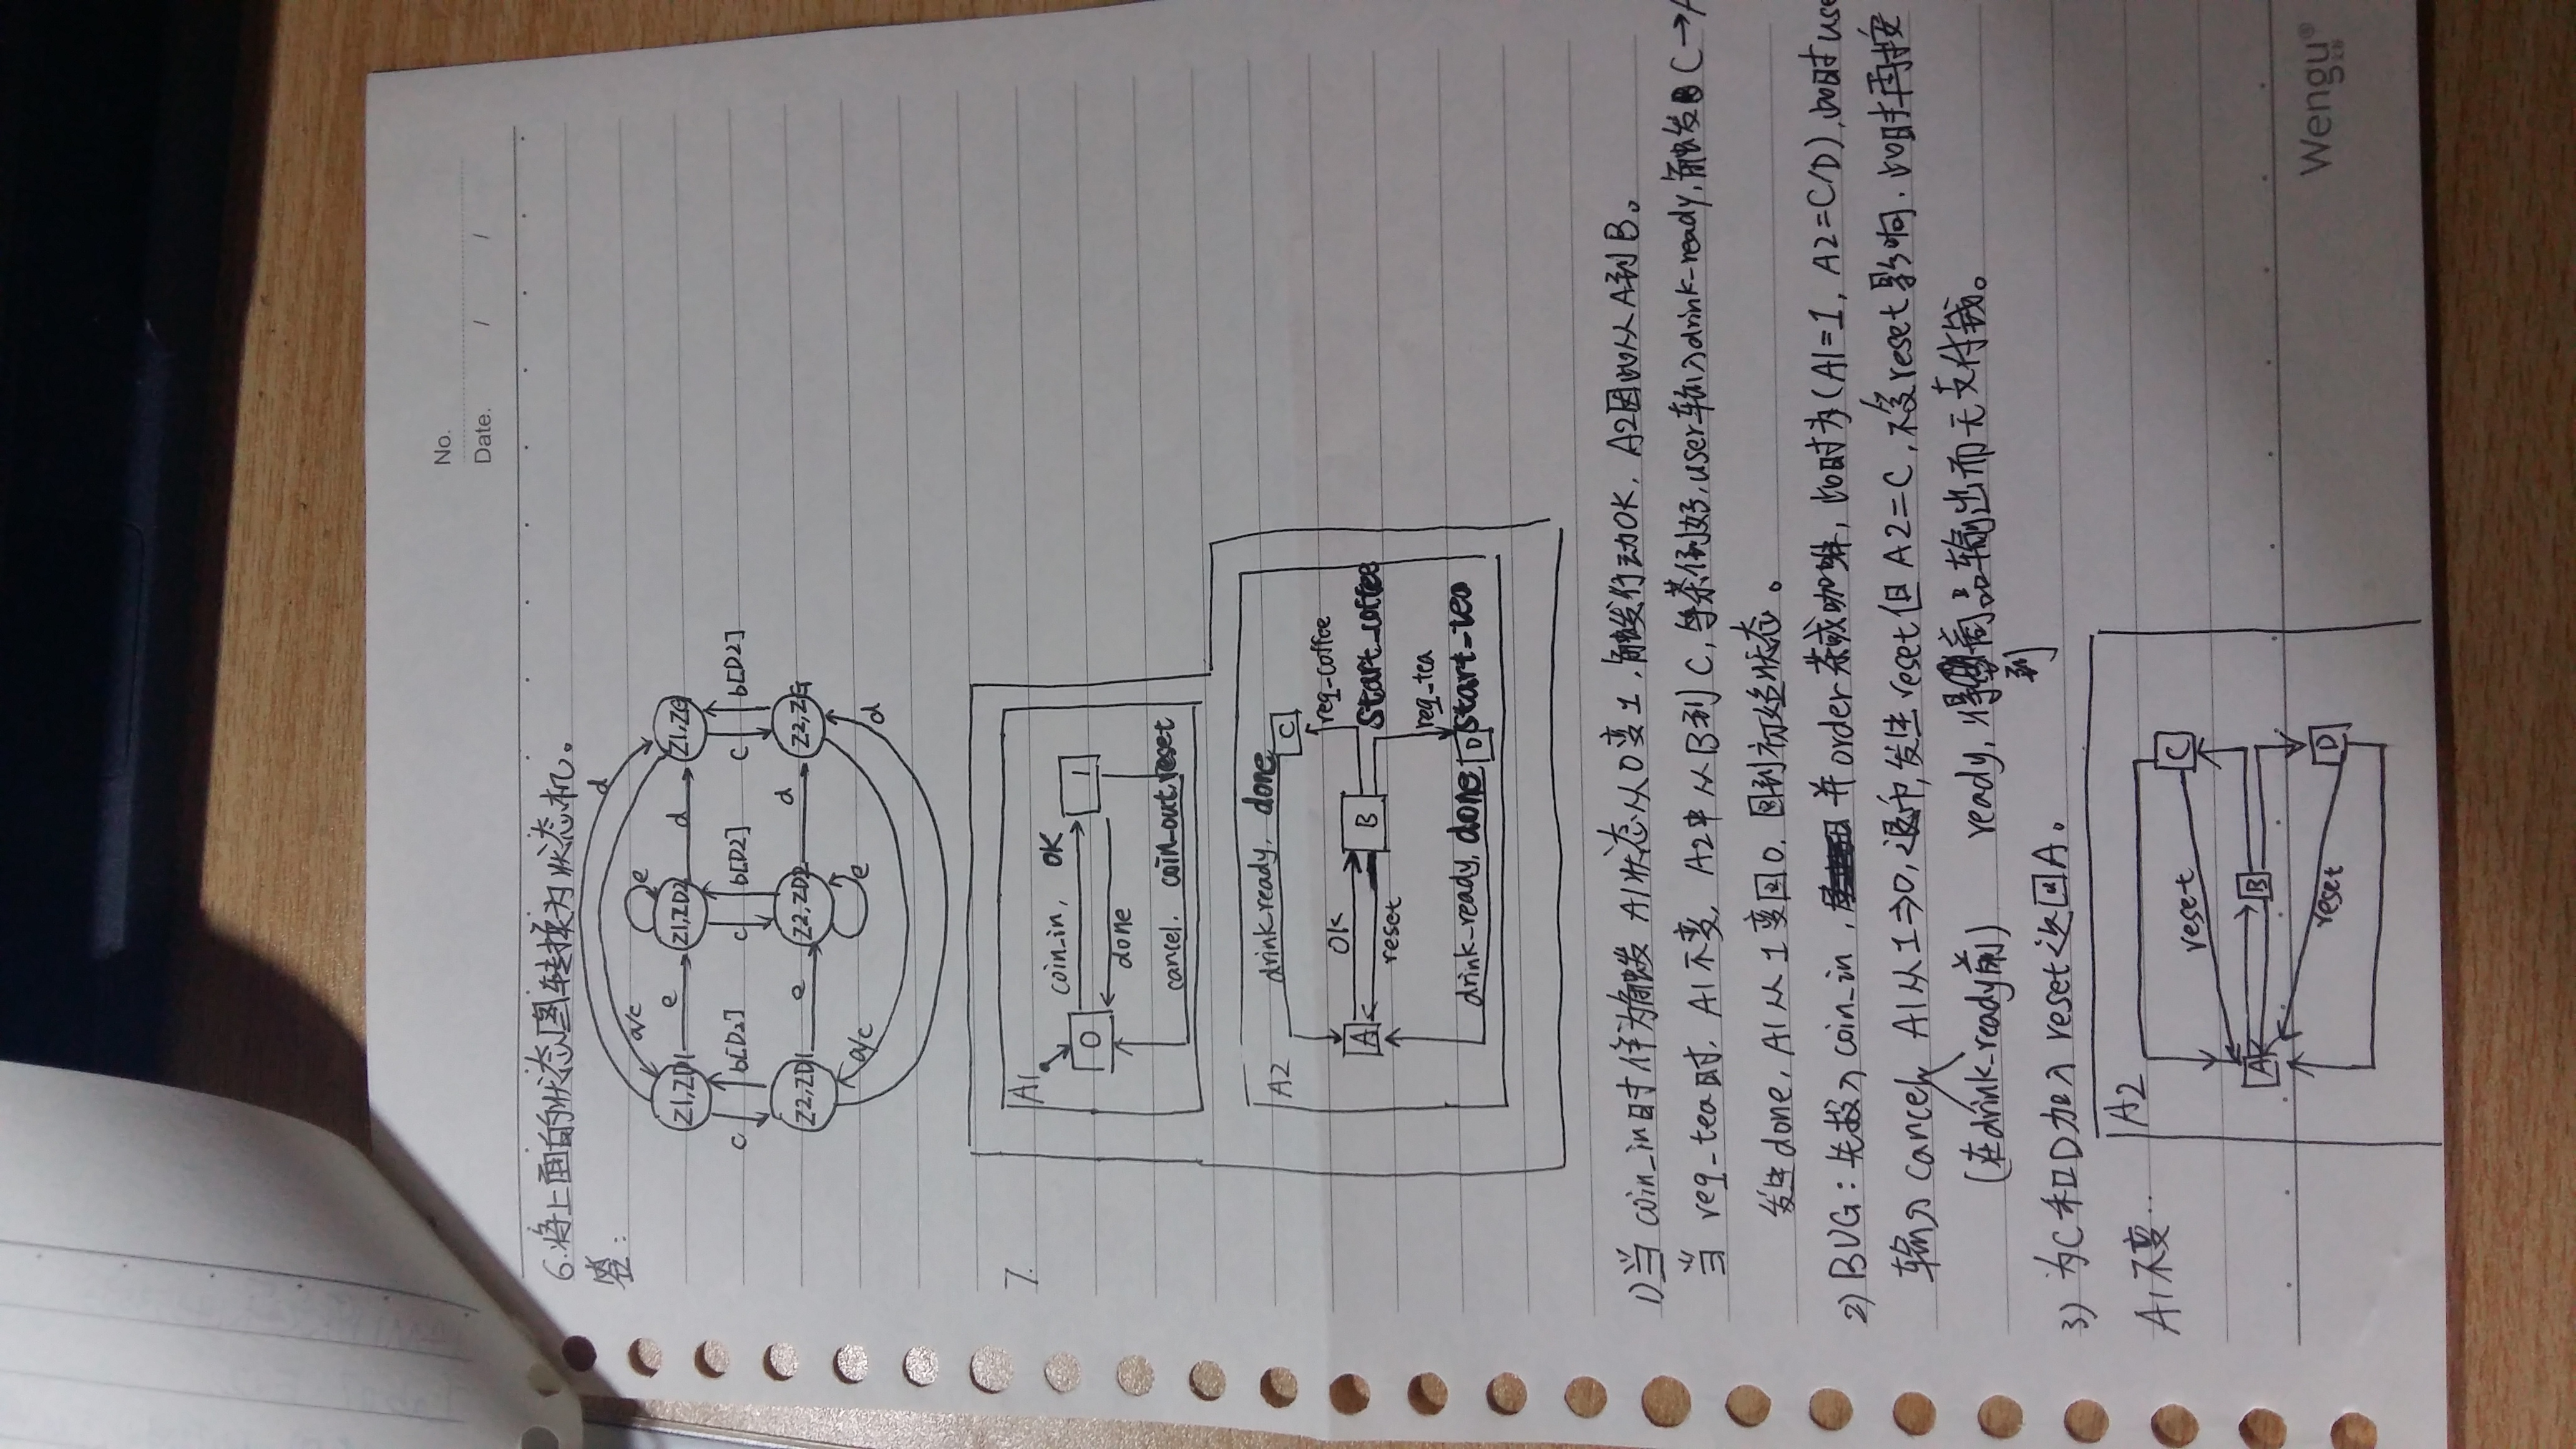 No.
Date. / /
6.将上面的状态图转换为状态机。
答:
d
a/c
e
Z1,ZD1
e
Z1,ZD2
d
Z1,ZG
c
b[D2]
c
b[D2]
c
b[D2]
Z2,ZD1
e
Z2,ZD2
d
Z2,ZG
a/c
e
d
7.
A1
coin_in, OK
0
1
done
cancel. coin_out,reset
A2
drink_ready, done
C
req_coffee
OK
A
B
start_coffee
reset
req_tea
drink_ready, done
D
start_tea
1)当 coin_in时作为触发 A1状态从0变1,触发行动OK, A2因此从A到B。
当 req_tea时, A1不变, A2中从B到C,等茶倒好,user输入drink-ready,触发C→A
发生done, A1从1变回0.回到初始状态。
2) BUG:先投入coin_in, 并order茶或咖啡,此时为(A1=1, A2=C/D),此时use
输入cancel, A1从1⇒0,退币,发生reset但A2=C,不受reset影响.此时再按
(在drink_ready前) ready,得到商品输出而无支付钱。
3) 为C和D加入reset返回A。
A1不变..
A2
reset
C
A
B
reset
D
Wengu®